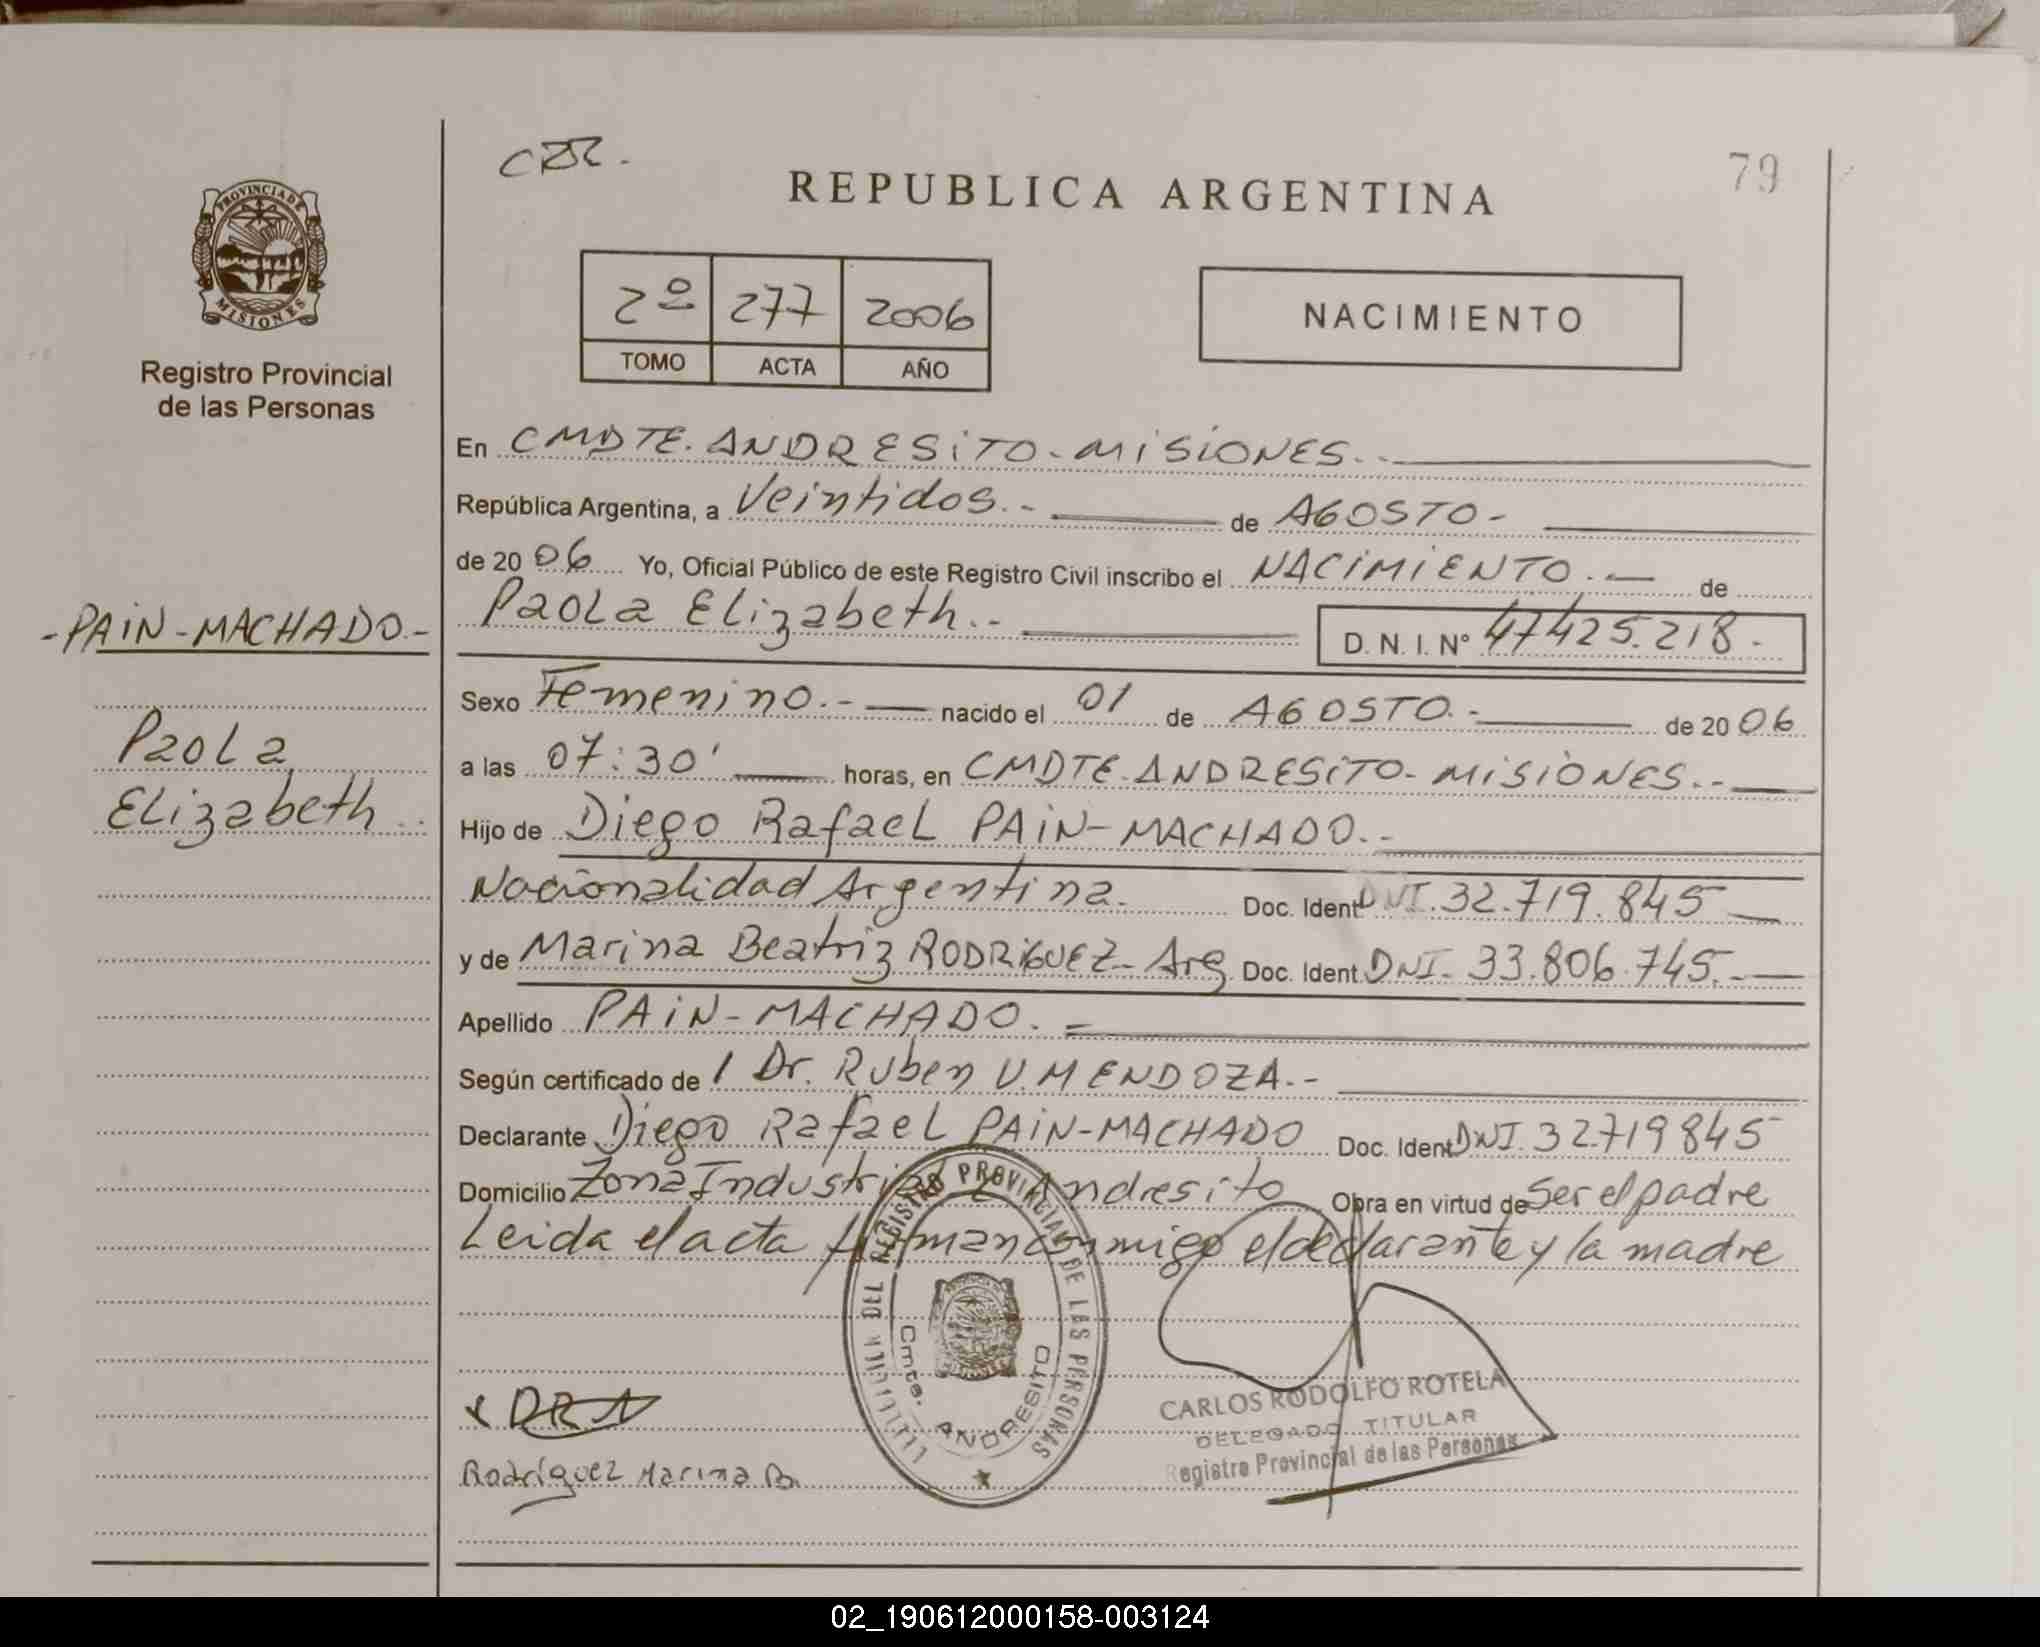 CZR.
REPUBLICA ARGENTINA
79
PROVINCIA DE
MISIONES
Registro Provincial
de las Personas
2º 277 2006
TOMO ACTA AÑO
NACIMIENTO
En CMDTE. ANDRESITO - MISIONES.-
República Argentina, a Veintidos.- de AGOSTO-
de 2006 Yo, Oficial Público de este Registro Civil inscribo el NACIMIENTO.- de
Paola Elizabeth.- D. N. I. Nº 47425.218.
-PAIN-MACHADO-
Paola
Elizabeth..
Sexo Femenino.- nacido el 01 de AGOSTO.- de 2006
a las 07:30' horas, en CMDTE. ANDRESITO- MISIONES.-
Hijo de Diego Rafael PAIN-MACHADO.-
Nacionalidad Argentina. Doc. Ident DNI. 32.719.845
y de Marina Beatriz RODRIGUEZ- Arg. Doc. Ident. DNI- 33.806.745.-
Apellido PAIN-MACHADO.
Según certificado de 1 Dr. Ruben V. MENDOZA.-
Declarante Diego Rafael PAIN-MACHADO Doc. Ident DNI. 32719845
Domicilio Zona Industrial Andresito Obra en virtud de Ser el padre
Leida el acta firman conmigo el declarante y la madre
DEL REGISTRO PROVINCIAL DE LAS PERSONAS
Cmte. ANDRESITO
x DRA
Rodríguez Marina B.
CARLOS RODOLFO ROTELA
DELEGADO TITULAR
Registro Provincial de las Personas
02_190612000158-003124